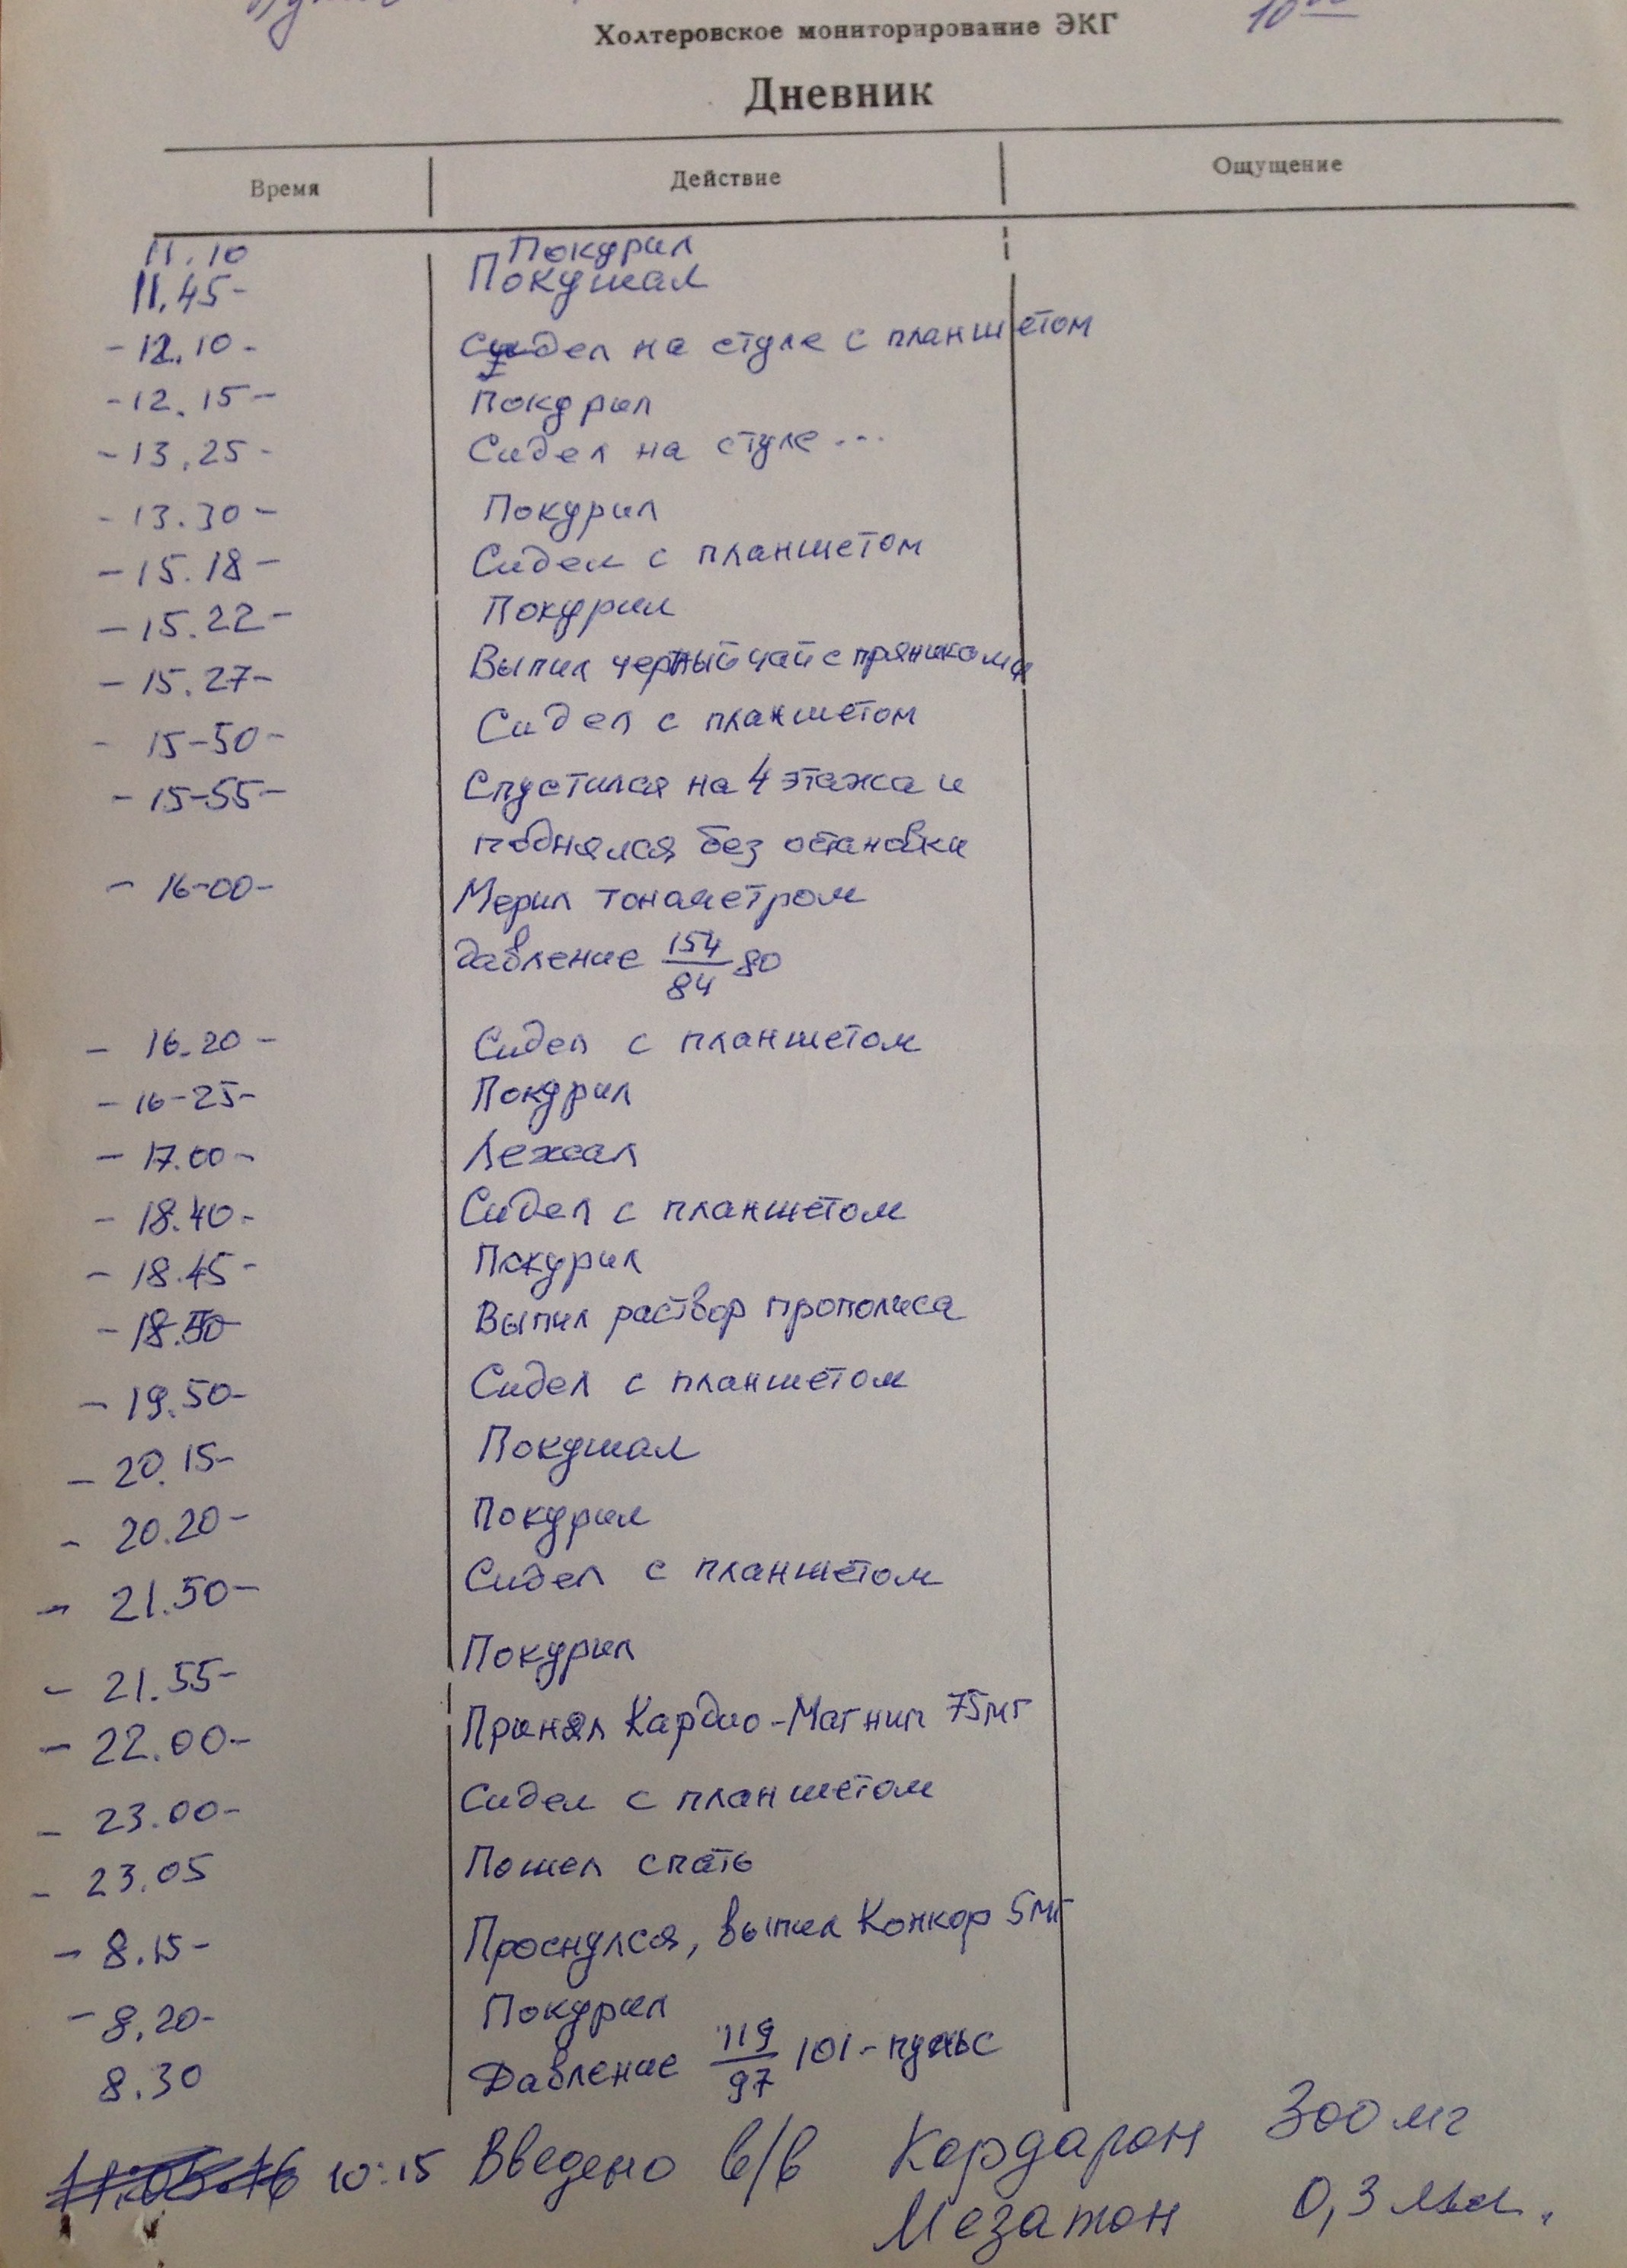 Холтеровское мониторирование ЭКГ
Дневник
Время Действие Ощущение
11.10 Покурил
11.45- Покушал
-12.10- Сидел на стуле с планшетом
-12.15- Покурил
-13.25- Сидел на стуле...
-13.30- Покурил
-15.18- Сидел с планшетом
-15.22- Покурил
-15.27- Выпил черный чай с пряниками
- 15-50- Сидел с планшетом
- 15-55- Спустился на 4 этажа и
поднялся без остановки
- 16-00- Мерил тонометром
давление 154/84 80
- 16.20- Сидел с планшетом
- 16-25- Покурил
- 17.00- Лежал
- 18.40- Сидел с планшетом
- 18.45- Покурил
- 18.50 Выпил раствор прополиса
- 19.50- Сидел с планшетом
- 20.15- Покушал
- 20.20- Покурил
- 21.50- Сидел с планшетом
- 21.55- Покурил
- 22.00- Принял Кардио-Магнил 75мг
- 23.00- Сидел с планшетом
- 23.05 Пошел спать
- 8.15- Проснулся, выпил Конкор 5мг
- 8.20- Покурил
8.30 Давление 119/97 101-пульс
10:15 Введено в/в Кордарон 300 мг
Мезатон 0,3 мл.